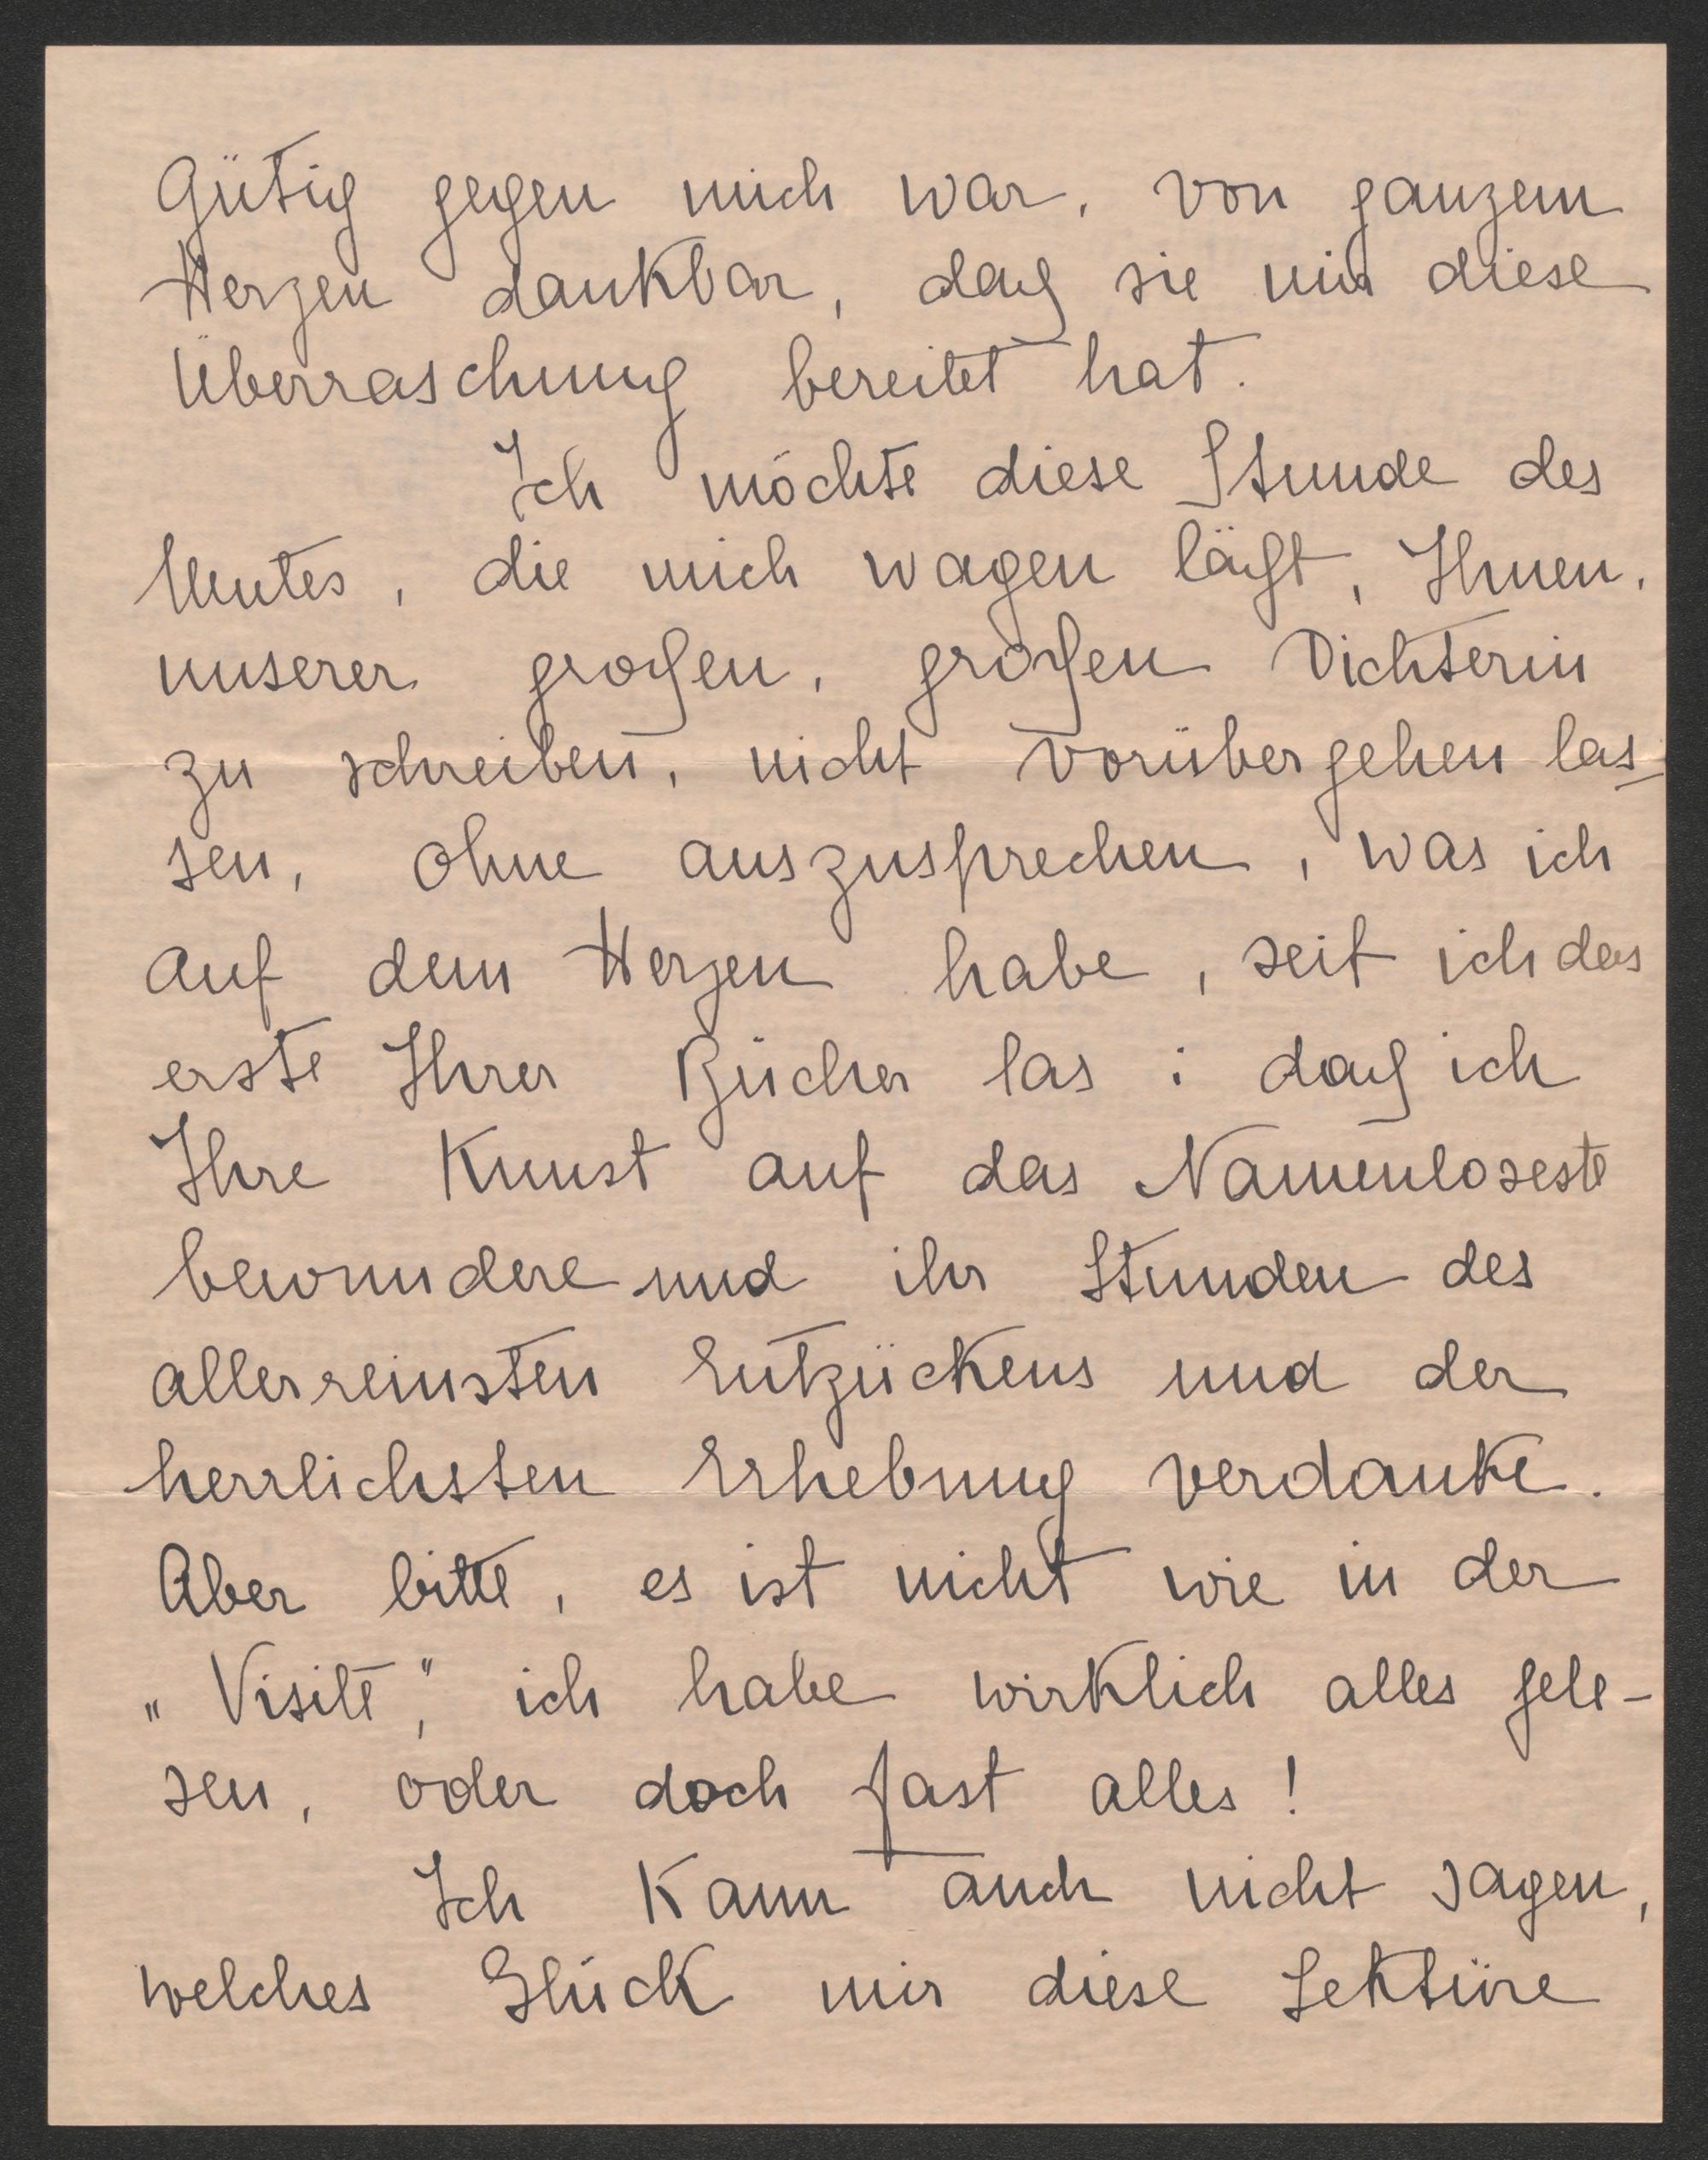 Gütig gegen mich war, von ganzem
Herzen dankbar, daß sie mir diese
Überraschung bereitet hat.
Ich möchte diese Stunde des
Mutes, die mich wagen läßt, Ihnen,
unserer großen, großen Dichterin
zu schreiben, nicht vorübergehen las-
sen, ohne auszusprechen, was ich
auf dem Herzen habe, seit ich das
erste Ihrer Bücher las: daß ich
Ihre Kunst auf das Namenloseste
bewundere und ihr Stunden des
allerreinsten Entzückens und der
herrlichsten Erhebung verdanke.
Aber bitte, es ist nicht wie in der
„Visite", ich habe wirklich alles gele-
sen, oder doch fast alles!
Ich kann auch nicht sagen,
welches Glück mir diese Lektüre